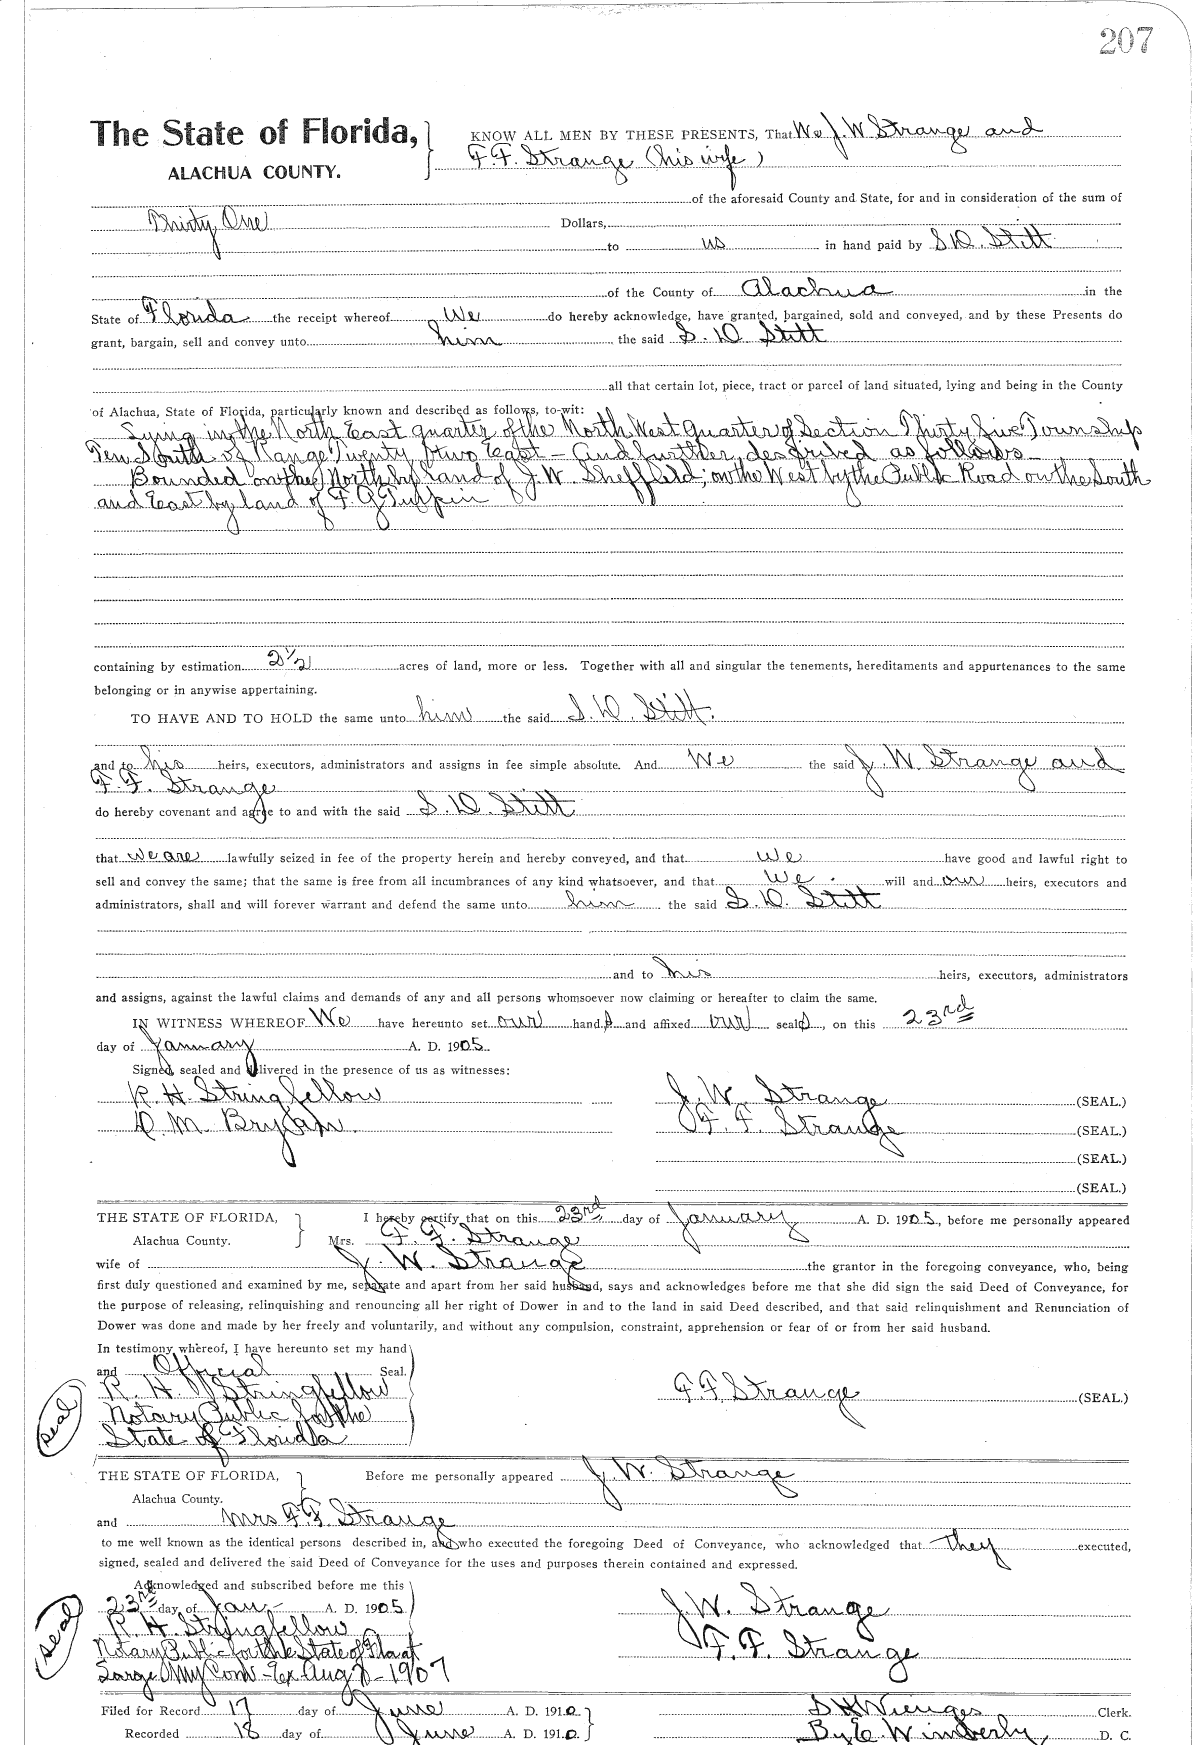 207
The State of Florida,
ALACHUA COUNTY.
KNOW ALL MEN BY THESE PRESENTS, That We J. W. Strange and
F. F. Strange (his wife)
of the aforesaid County and State, for and in consideration of the sum of
Thirty One Dollars,
to us in hand paid by S. D. Stitt
of the County of Alachua in the
State of Florida the receipt whereof We do hereby acknowledge, have granted, bargained, sold and conveyed, and by these Presents do
grant, bargain, sell and convey unto him the said S. D. Stitt
all that certain lot, piece, tract or parcel of land situated, lying and being in the County
of Alachua, State of Florida, particularly known and described as follows, to-wit:
Lying in the North East quarter of the North West Quarter of Section Thirty five Township
Ten South of Range Twenty two East - and further described as follows -
Bounded on the North by land of J. W. Sheffield; on the West by the Public Road on the South
and East by land of F. G.
containing by estimation 2 1/2 acres of land, more or less. Together with all and singular the tenements, hereditaments and appurtenances to the same
belonging or in anywise appertaining.
TO HAVE AND TO HOLD the same unto him the said S. D. Stitt.
and to his heirs, executors, administrators and assigns in fee simple absolute. And We the said J. W. Strange and
F. F. Strange
do hereby covenant and agree to and with the said S. D. Stitt
that we are lawfully seized in fee of the property herein and hereby conveyed, and that we have good and lawful right to
sell and convey the same; that the same is free from all incumbrances of any kind whatsoever, and that We will and our heirs, executors and
administrators, shall and will forever warrant and defend the same unto him the said S. D. Stitt
and to his heirs, executors, administrators
and assigns, against the lawful claims and demands of any and all persons whomsoever now claiming or hereafter to claim the same.
IN WITNESS WHEREOF We have hereunto set our hands and affixed our seals, on this 23rd
day of January A. D. 1905.
Signed, sealed and delivered in the presence of us as witnesses:
R. H. Stringfellow J. W. Strange (SEAL.)
D. M. Bryan. F. F. Strange (SEAL.)
(SEAL.)
(SEAL.)
THE STATE OF FLORIDA, I hereby certify that on this 23rd day of January A. D. 1905, before me personally appeared
Alachua County. Mrs. F. F. Strange
wife of J. W. Strange the grantor in the foregoing conveyance, who, being
first duly questioned and examined by me, separate and apart from her said husband, says and acknowledges before me that she did sign the said Deed of Conveyance, for
the purpose of releasing, relinquishing and renouncing all her right of Dower in and to the land in said Deed described, and that said relinquishment and Renunciation of
Dower was done and made by her freely and voluntarily, and without any compulsion, constraint, apprehension or fear of or from her said husband.
In testimony whereof, I have hereunto set my hand
and Official Seal.
R. H. Stringfellow F. F. Strange (SEAL.)
Notary Public for the
seal
State of Florida
THE STATE OF FLORIDA, Before me personally appeared J. W. Strange
Alachua County.
and Mrs F. F. Strange
to me well known as the identical persons described in, and who executed the foregoing Deed of Conveyance, who acknowledged that they executed,
signed, sealed and delivered the said Deed of Conveyance for the uses and purposes therein contained and expressed.
Acknowledged and subscribed before me this
23rd day of Jan- A. D. 1905 J. W. Strange
R. H. Stringfellow
seal
Notary Public for the State of Fla at F. F. Strange
Large My Com - Ex Aug 7 - 1907
Filed for Record 17 day of June A. D. 1910. S H Wienges Clerk.
Recorded 18 day of June A. D. 1910. By E. Wimberly D. C.